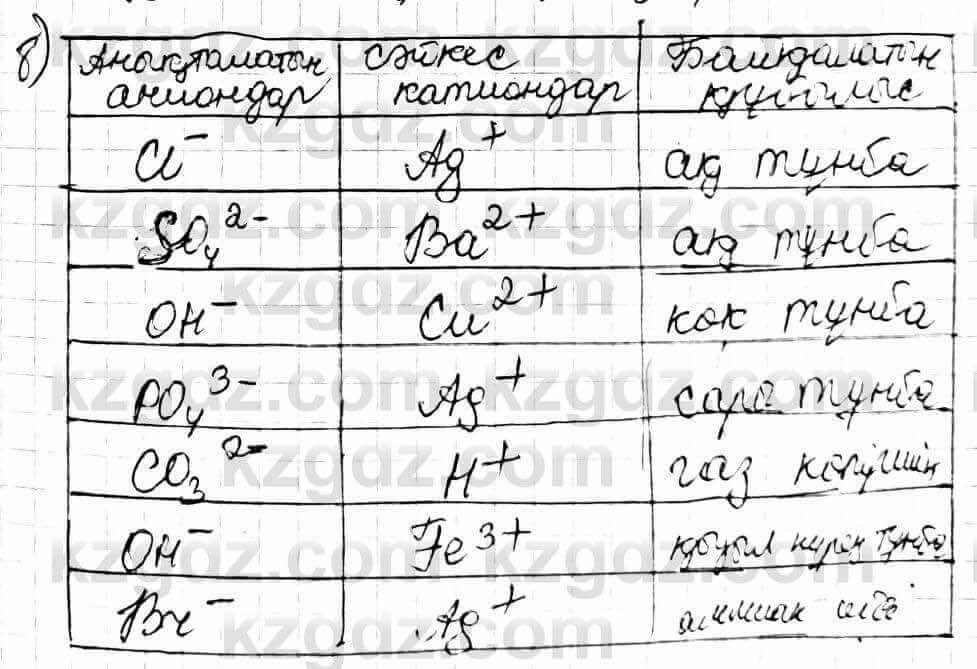 б)
Анықталатын аниондар сәйкес катиондар Байқалатын құбылыс
Cl⁻ Ag⁺ ақ тұнба
SO₄²⁻ Ba²⁺ ақ тұнба
OH⁻ Cu²⁺ көк тұнба
PO₄³⁻ Ag⁺ сары тұнба
CO₃²⁻ H⁺ газ көпіршік
OH⁻ Fe³⁺ қызыл күрең тұнба
Br⁻ Ag⁺
kzgdz.com